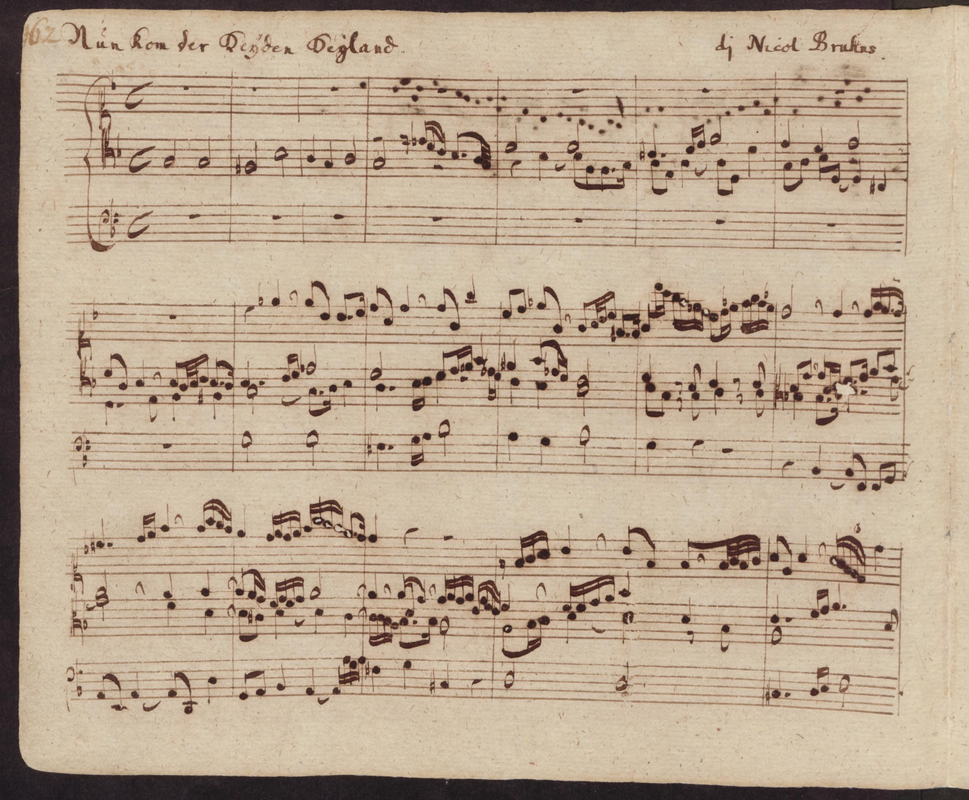 162 Nun kom der Heyden Heyland. di Nicol Bruhns.